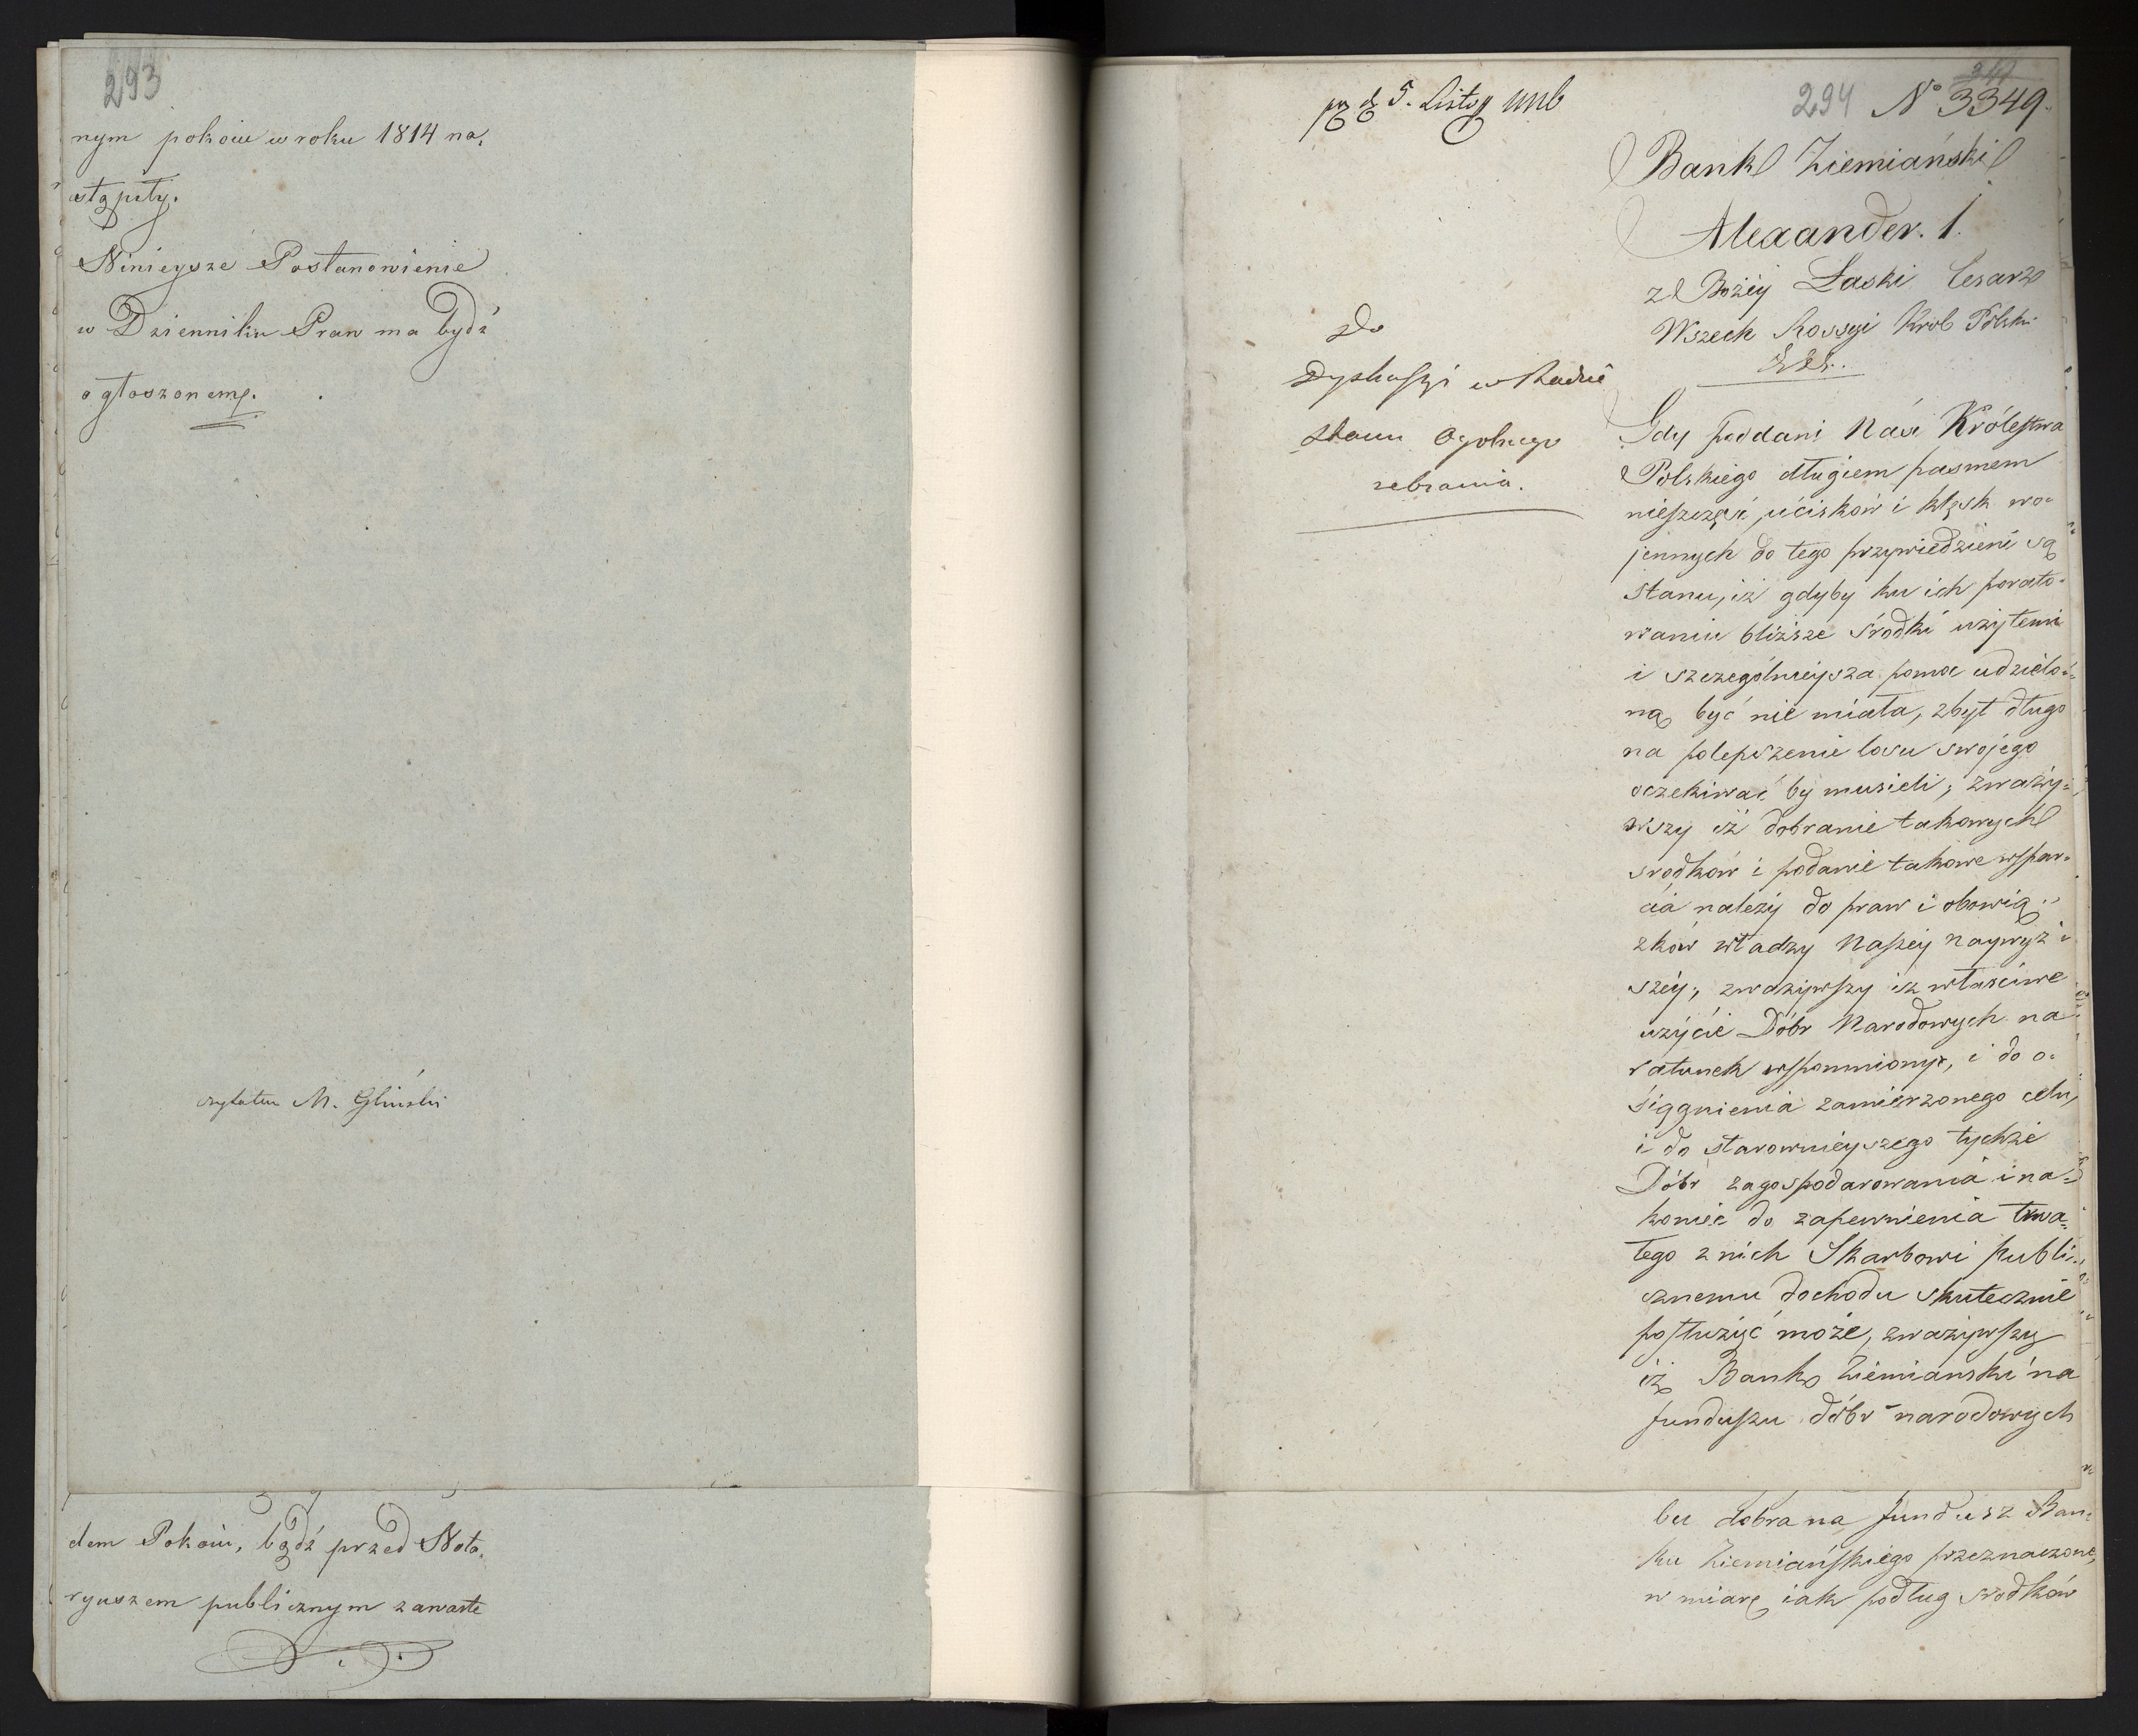 293
nym pokoiu w roku 1814 na,
stąpiły.
Ninieysze Postanowienie
w Dzienniku Praw ma bydź
ogłoszonemp.
czytałem M. Gliński
dem Pokoiu, bądź przed Nota,
ryuszem publicznym zawarte
5. Listop
294 No 3349.
Bank Ziemiański
Alexander. I.
z Bożéy Łaski Cesarz
Wszech Rossyi Król Polski
&&&.
Do
Dyskussyi w Radzie
Stanu Ogolnego
zebrania.
Gdy poddani Nasi Królestwa
Polskiego długiem pasmem
nieszczęść, ucisków i klęsk wo-
jennych do tego przywiedzieni są
stanu, iż gdyby ku ich porato-
waniu bliższe środki użytemi
i szczególnieysza pomoc udzielo-
ną być nie miała, zbyt długo
na polepszenie losu swojego
oczekiwać by musieli; zważy-
wszy iż dobranie takowych
srodków i podanie takowe wspar-
cia należy do praw i obowią-
zków władzy Naszéy naywyż-
széy; zważywszy iż właściwe
użycie Dóbr Narodowych na
ratunek wspomniony, i do o-
siągnienia zamierzonego celu,
i do starownieyszego tychże
Dóbr zagospodarowania i na-
koniec do zapewnienia trwa-
łego z nich Skarbowi publi-
cznemu dochodu skutecznie
posłużyć może, zważywszy
iż Bank Ziemiański na
funduszu dóbr narodowych
bu dobra na fundusz Ban-
ku Ziemiańskiego przeznaczone,
w miarę iak podług srodków